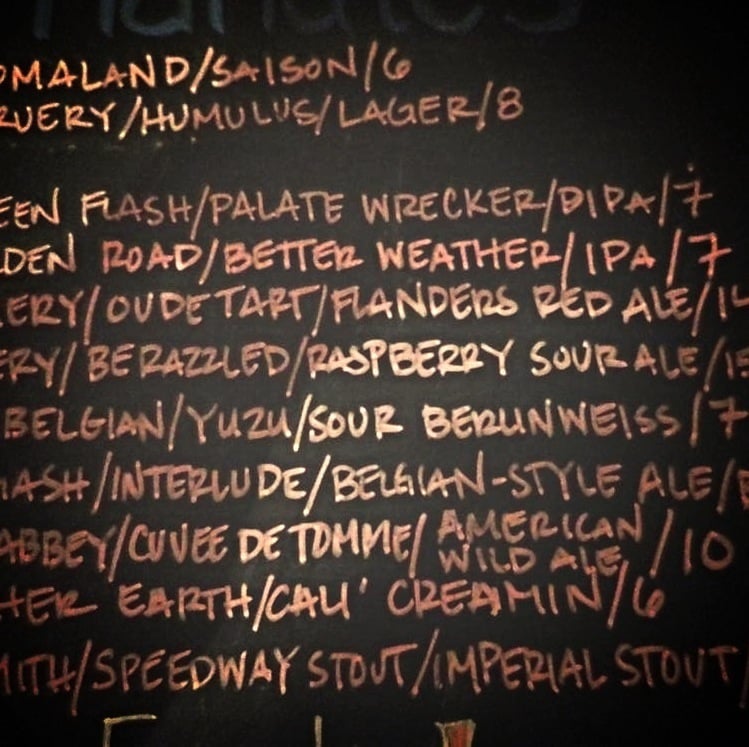 OMALAND/SAISON/6
RUERY/HUMULUS/LAGER/8
EEN FLASH/PALATE WRECKER/DIPA/7
LDEN ROAD/BETTER WEATHER/IPA/7
ERY/OUDE TART/FLANDERS RED ALE/14
ERY/BERAZZLED/RASPBERRY SOUR ALE/15
BELGIAN/YUZU/SOUR BERLINWEISS/7
MASH/INTERLUDE/BELGIAN-STYLE ALE/
ABBEY/CUVEE DE TOMME/AMERICAN WILD ALE/10
HER EARTH/CALI' CREAMIN/6
MITH/SPEEDWAY STOUT/IMPERIAL STOUT/